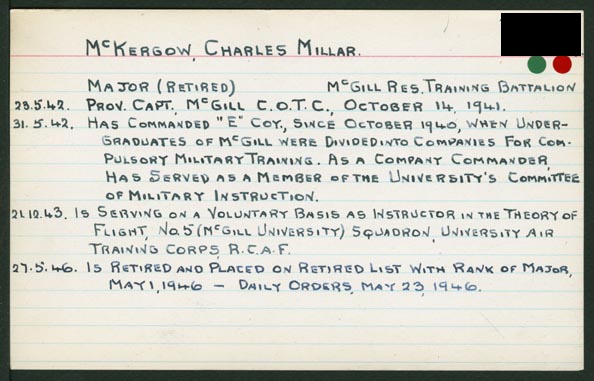 McKergow, Charles Millar.
Major (Retired) McGill Res. Training Battalion
28.5.42. Prov. Capt., McGill C.O.T.C., October 14, 1941.
31.5.42. Has Commanded "E" Coy., since October 1940, when Under-
graduates of McGill were divided into Companies for Com-
pulsory Military Training. As a Company Commander,
has served as a member of the University's Committee
of Military Instruction.
21.12.43. Is serving on a voluntary basis as Instructor in the Theory of
Flight, No. 5 (McGill University) Squadron, University Air
Training Corps, R.C.A.F.
27.5.46. Is retired and placed on Retired List with Rank of Major,
May 1, 1946 — Daily Orders, May 23, 1946.